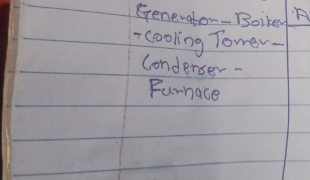 Generator - Boiler
- Cooling Tower -
Condenser -
Furnace